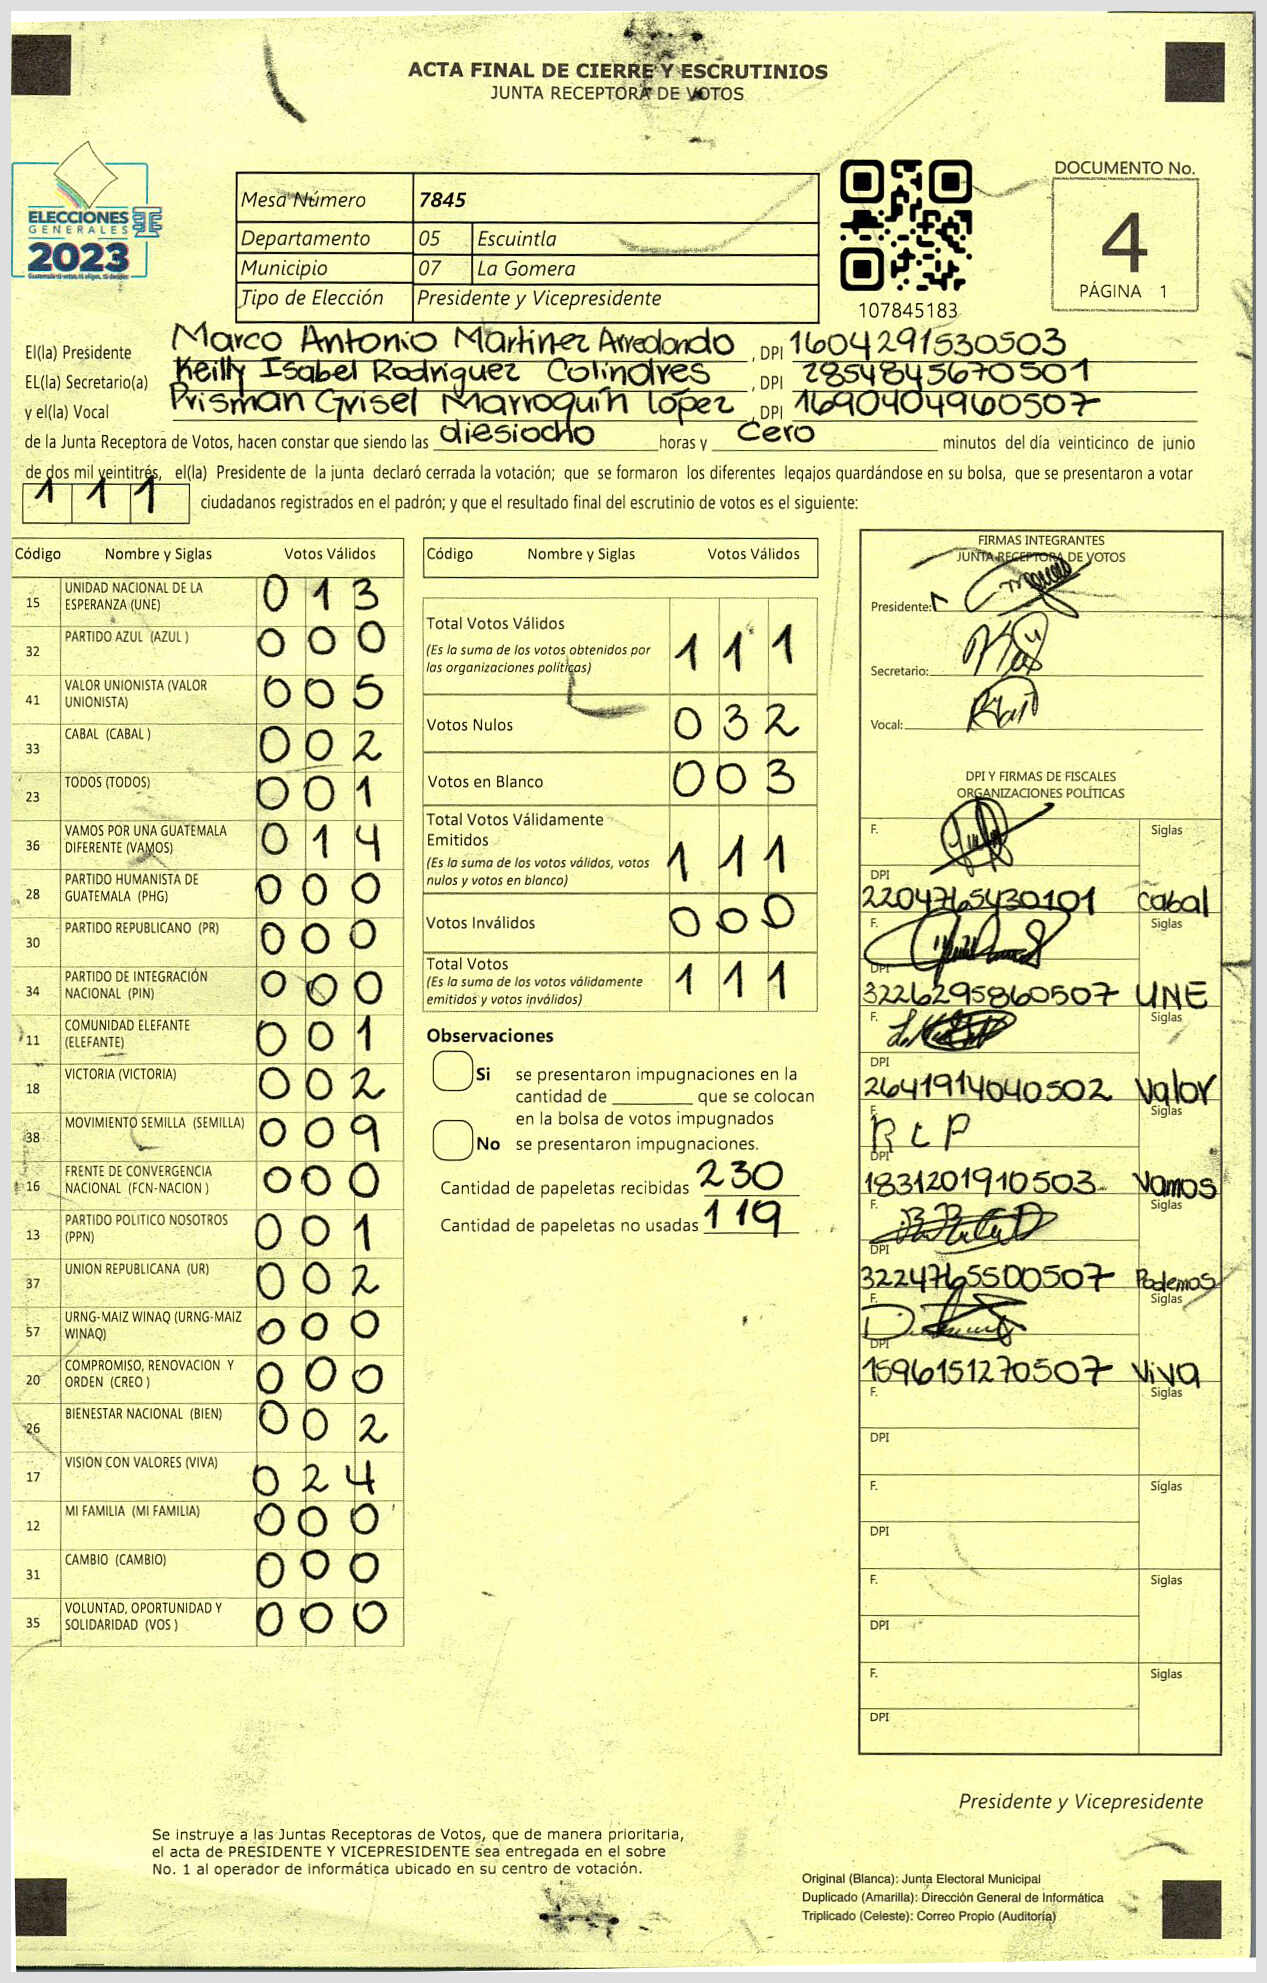 ACTA FINAL DE CIERRE Y ESCRUTINIOS
JUNTA RECEPTORA DE VOTOS
ELECCIONES
GENERALES
2023
Mesa Número 7845
Departamento 05 Escuintla
Municipio 07 La Gomera
Tipo de Elección Presidente y Vicepresidente
107845183
DOCUMENTO No.
4
PÁGINA 1
El(la) Presidente Marco Antonio Martinez Arredondo , DPI 1604291530503
EL(la) Secretario(a) Keilly Isabel Rodriguez Colindres , DPI 2854845670501
y el(la) Vocal Prisman Grisel Marroquín López , DPI 1690404960507
de la Junta Receptora de Votos, hacen constar que siendo las diesiocho horas y cero minutos del día veinticinco de junio
de dos mil veintitrés, el(la) Presidente de la junta declaró cerrada la votación; que se formaron los diferentes legajos guardándose en su bolsa, que se presentaron a votar
111 ciudadanos registrados en el padrón; y que el resultado final del escrutinio de votos es el siguiente:
Código Nombre y Siglas Votos Válidos
15 UNIDAD NACIONAL DE LA ESPERANZA (UNE) 013
32 PARTIDO AZUL (AZUL ) 000
41 VALOR UNIONISTA (VALOR UNIONISTA) 005
33 CABAL (CABAL ) 002
23 TODOS (TODOS) 001
36 VAMOS POR UNA GUATEMALA DIFERENTE (VAMOS) 014
28 PARTIDO HUMANISTA DE GUATEMALA (PHG) 000
30 PARTIDO REPUBLICANO (PR) 000
34 PARTIDO DE INTEGRACIÓN NACIONAL (PIN) 000
11 COMUNIDAD ELEFANTE (ELEFANTE) 001
18 VICTORIA (VICTORIA) 002
38 MOVIMIENTO SEMILLA (SEMILLA) 009
16 FRENTE DE CONVERGENCIA NACIONAL (FCN-NACION ) 000
13 PARTIDO POLITICO NOSOTROS (PPN) 001
37 UNION REPUBLICANA (UR) 002
57 URNG-MAIZ WINAQ (URNG-MAIZ WINAQ) 000
20 COMPROMISO, RENOVACION Y ORDEN (CREO ) 000
26 BIENESTAR NACIONAL (BIEN) 002
17 VISION CON VALORES (VIVA) 024
12 MI FAMILIA (MI FAMILIA) 000
31 CAMBIO (CAMBIO) 000
35 VOLUNTAD, OPORTUNIDAD Y SOLIDARIDAD (VOS ) 000
Código Nombre y Siglas Votos Válidos
Total Votos Válidos 111
(Es la suma de los votos obtenidos por
las organizaciones políticas)
Votos Nulos 032
Votos en Blanco 003
Total Votos Válidamente
Emitidos 111
(Es la suma de los votos válidos, votos
nulos y votos en blanco)
Votos Inválidos 000
Total Votos 111
(Es la suma de los votos válidamente
emitidos y votos inválidos)
Observaciones
Si se presentaron impugnaciones en la
cantidad de ________ que se colocan
en la bolsa de votos impugnados
No se presentaron impugnaciones.
Cantidad de papeletas recibidas 230
Cantidad de papeletas no usadas 119
FIRMAS INTEGRANTES
JUNTA RECEPTORA DE VOTOS
Presidente:
Secretario:
Vocal:
DPI Y FIRMAS DE FISCALES
ORGANIZACIONES POLÍTICAS
F. Siglas
DPI
2204765430101 cabal
F. Siglas
DPI
3226295860507 UNE
F. Siglas
DPI
2641914040502 Valor
F. Siglas
RLP
DPI
1831201910503 Vamos
F. Siglas
DPI
3224765500507 Podemos
F. Siglas
DPI
1596151270507 ViVA
F. Siglas
DPI
F. Siglas
DPI
F. Siglas
DPI
F. Siglas
DPI
Presidente y Vicepresidente
Se instruye a las Juntas Receptoras de Votos, que de manera prioritaria,
el acta de PRESIDENTE Y VICEPRESIDENTE sea entregada en el sobre
No. 1 al operador de informática ubicado en su centro de votación.
Original (Blanca): Junta Electoral Municipal
Duplicado (Amarilla): Dirección General de Informática
Triplicado (Celeste): Correo Propio (Auditoría)